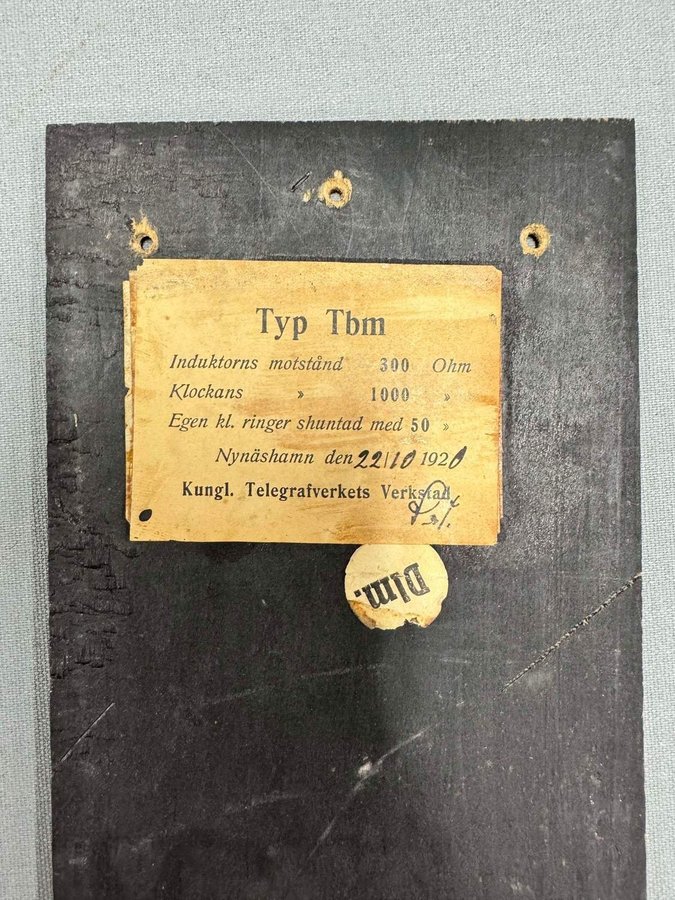 Typ Tbm
Induktorns motstånd 300 Ohm
Klockans » 1000 »
Egen kl. ringer shuntad med 50 »
Nynäshamn den 22/10 1920
Kungl. Telegrafverkets Verkstad.
Dlm.